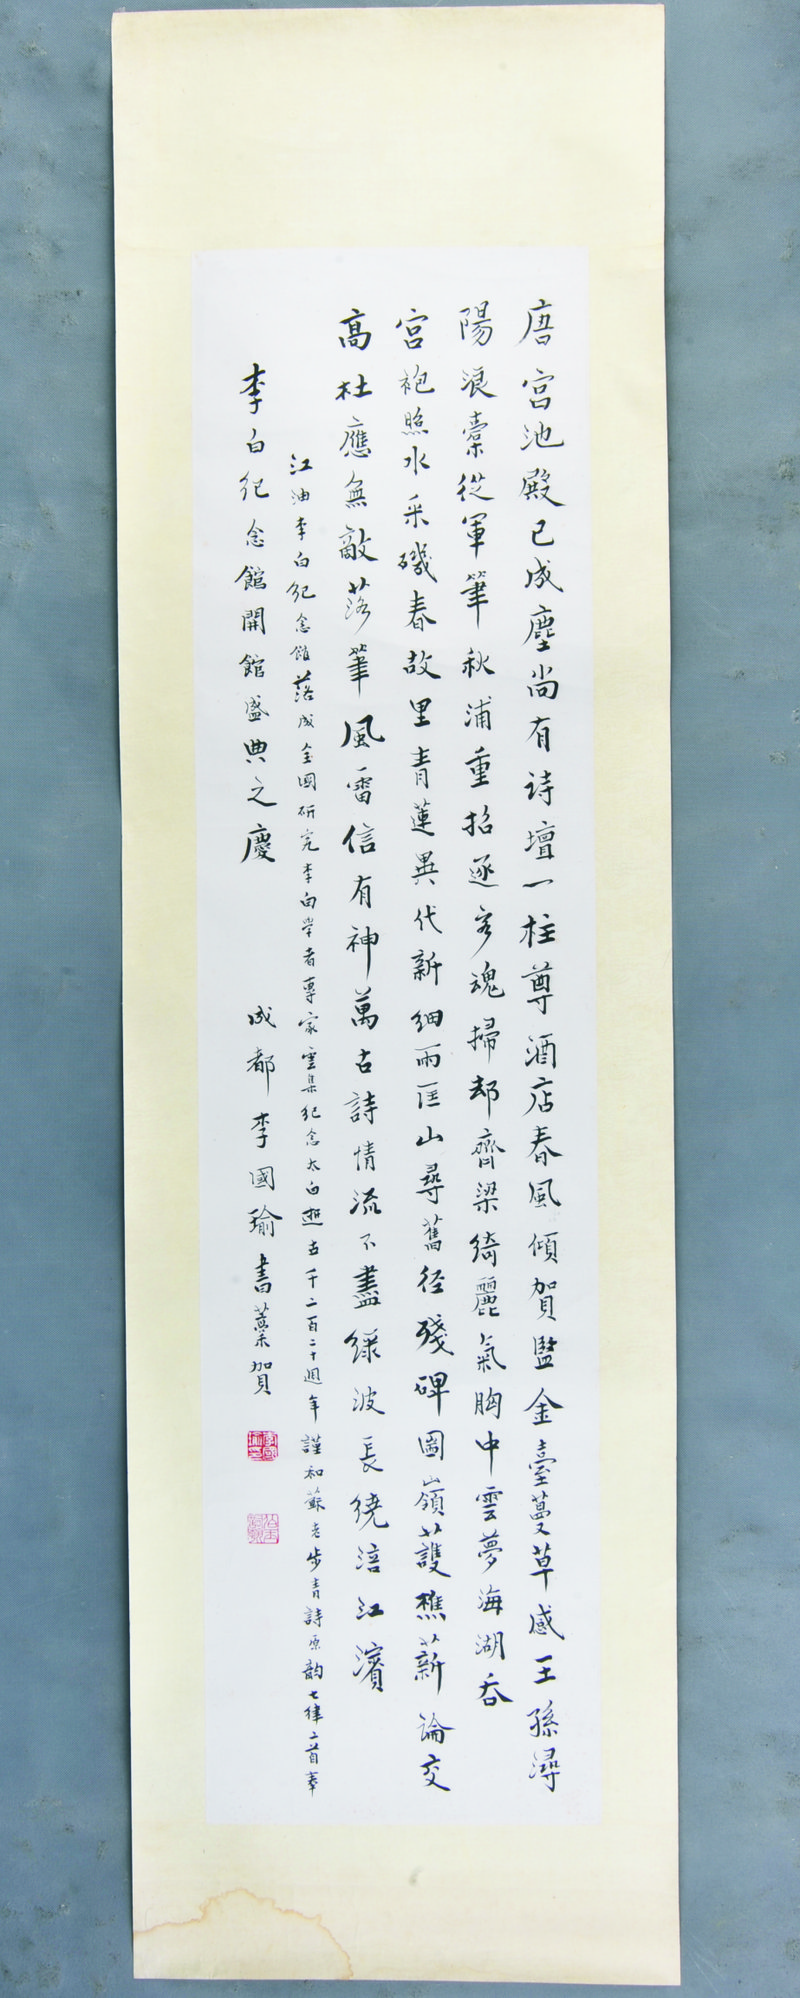 唐宮池殿已成塵尚有詩壇一柱尊酒店春風傾賀監金臺蔓草感王孫潯
陽浪藁從軍筆秋浦重招逐客魂掃却齊梁綺麗氣胸中雲夢海湖吞
宮袍照水采磯春故里青蓮異代新細雨匡山尋舊徑殘碑圌嶺護樵薪論交
高杜應無敵落筆風雷信有神萬古詩情流不盡綠波長繞涪江濱
江油李白紀念館落成全國研究李白學者專家雲集紀念太白逝世千二百二十週年謹和蘇老步青詩原韵七律二首奉
李白紀念館開館盛典之慶
成都李國瑜書藁賀